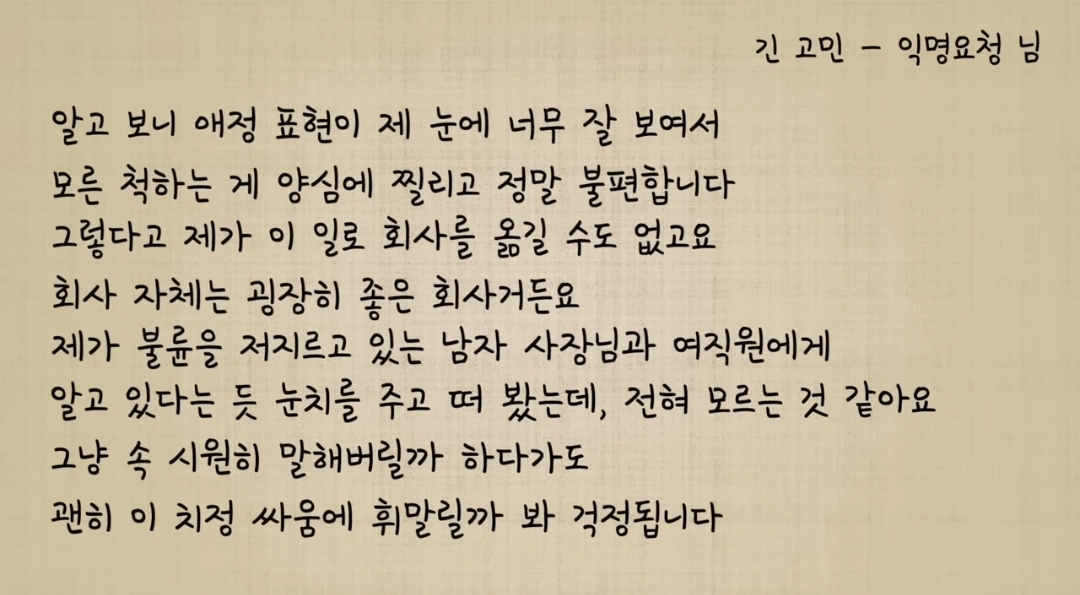 긴 고민 - 익명요청 님
알고 보니 애정 표현이 제 눈에 너무 잘 보여서
모른 척하는 게 양심에 찔리고 정말 불편합니다
그렇다고 제가 이 일로 회사를 옮길 수도 없고요
회사 자체는 굉장히 좋은 회사거든요
제가 불륜을 저지르고 있는 남자 사장님과 여직원에게
알고 있다는 듯 눈치를 주고 떠 봤는데, 전혀 모르는 것 같아요
그냥 속 시원히 말해버릴까 하다가도
괜히 이 치정 싸움에 휘말릴까 봐 걱정됩니다